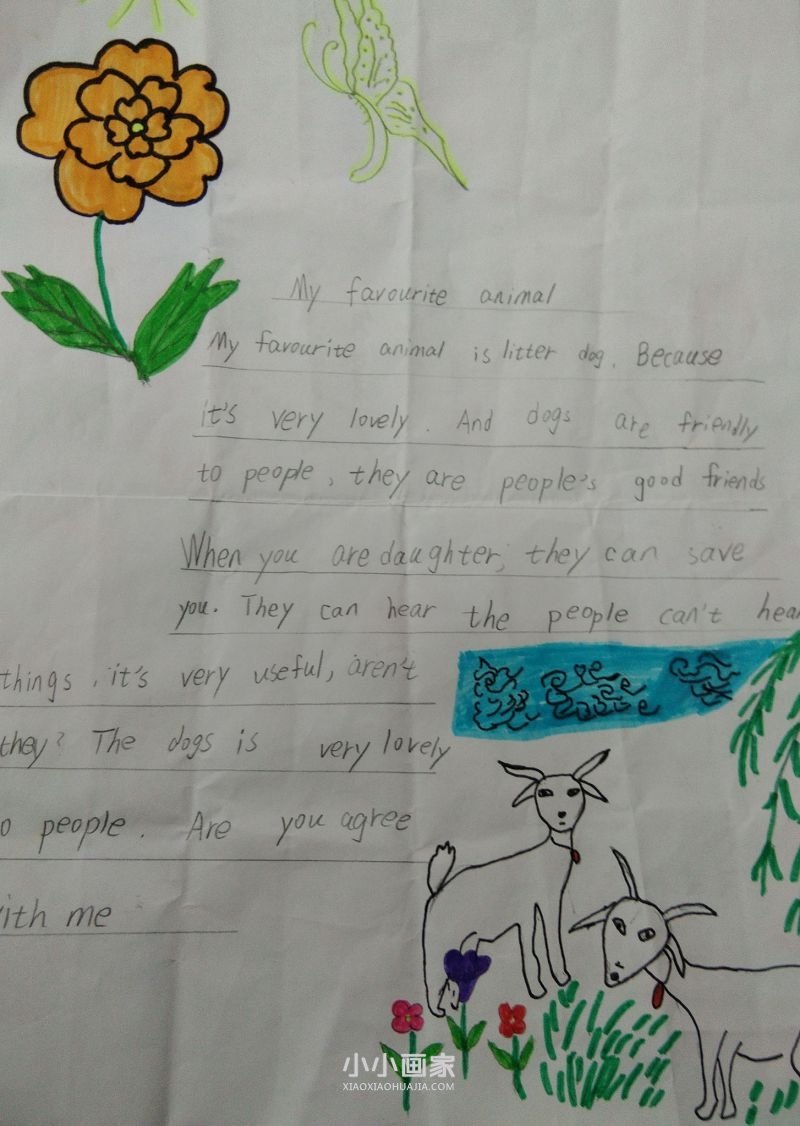 My favourite animal
My favourite animal is litter dog. Because
it's very lovely. And dogs are friendly
to people, they are people's good friends
When you are daughter, they can save
you. They can hear the people can't hear
things, it's very useful, aren't
they? The dogs is very lovely
o people. Are you agree
ith me
小小画家
XIAOXIAOHUAJIA.COM